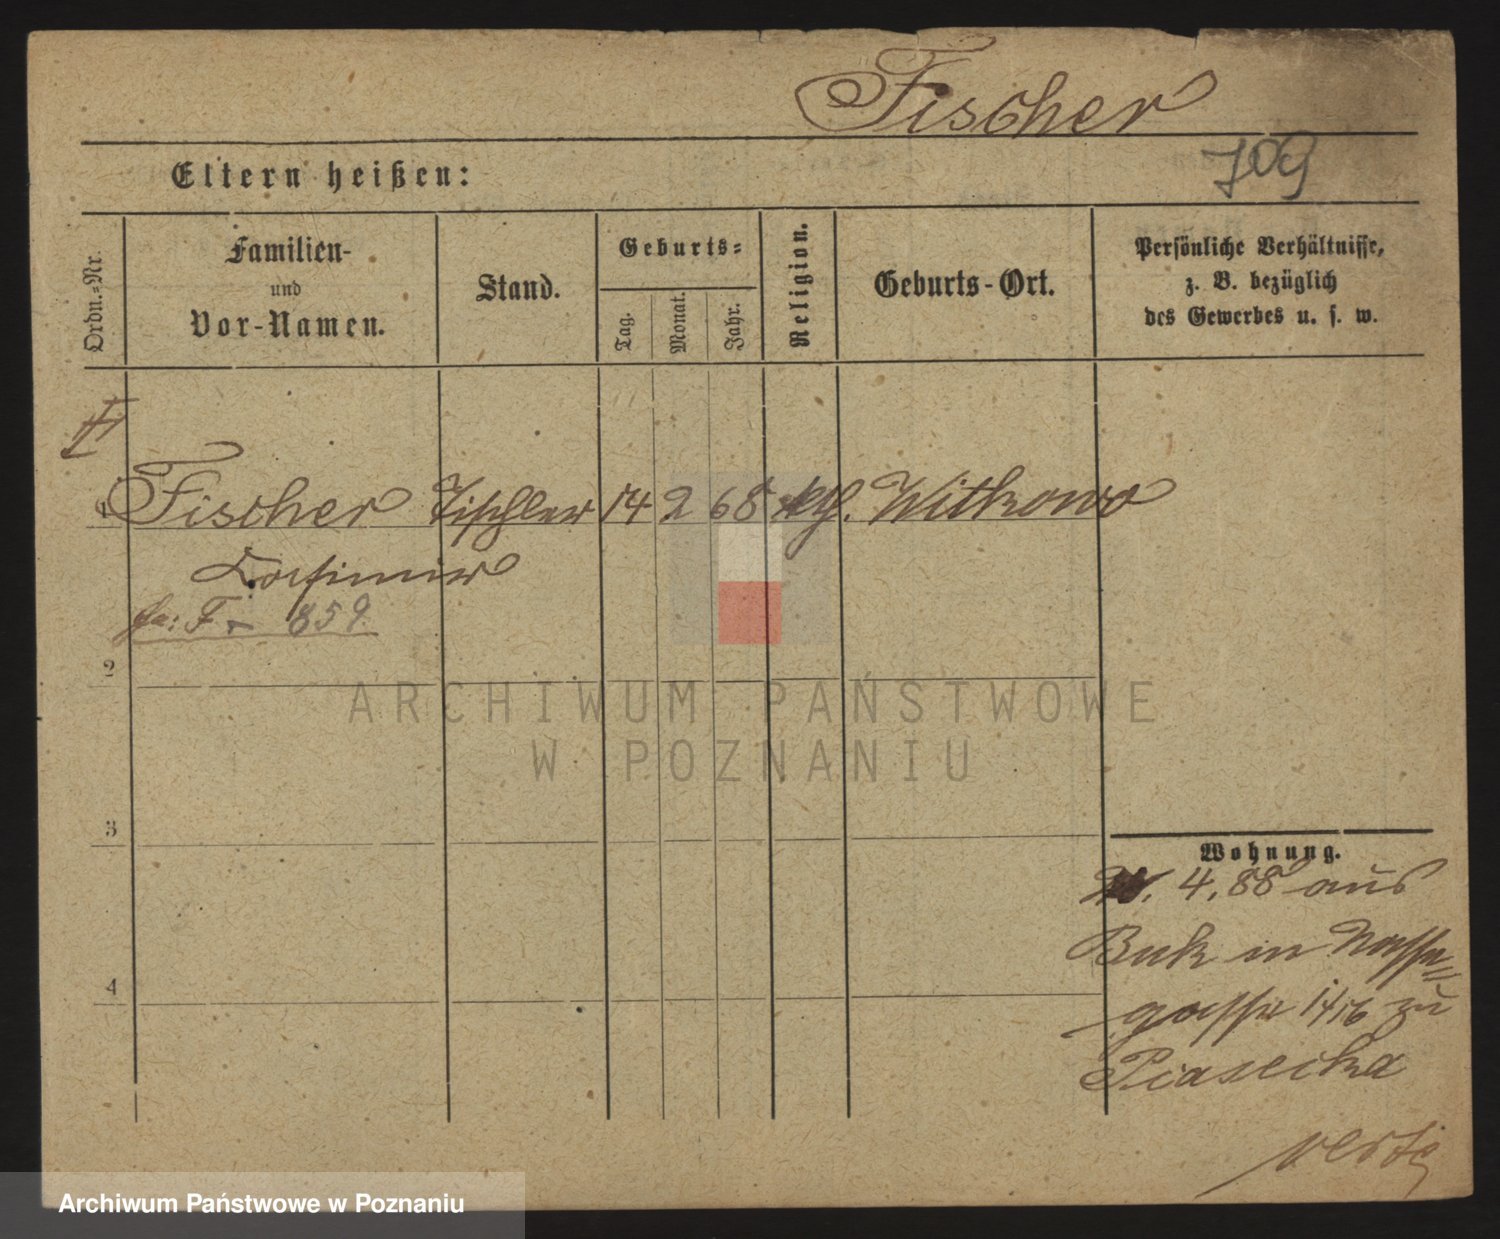 Fischer
709
Eltern heißen:
Ordn.-Nr.
Familien-
und
Vor-Namen.
Stand.
Geburts-
Tag.
Monat.
Jahr.
Religion.
Geburts-Ort.
Persönliche Verhältnisse,
z. B. bezüglich
des Gewerbes u. s. w.
1 Fischer Tischler 14 2 68 kth. Witkowo
Casimir
fa: F - 859.
2
3
4
Wohnung.
4. 88 aus
Buk in Wasser=
gasse 14/16 zu
Piasecka
verte
ARCHIWUM PAŃSTWOWE
W POZNANIU
Archiwum Państwowe w Poznaniu